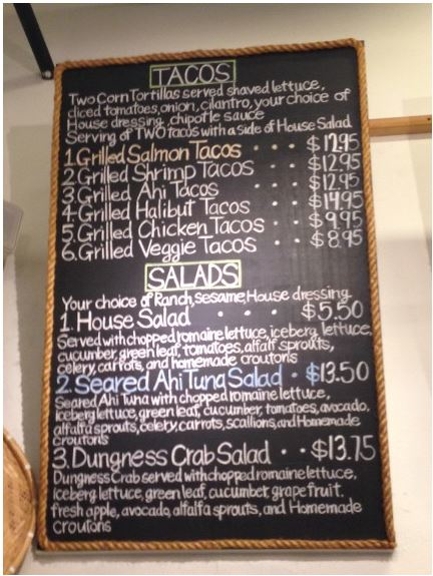 TACOS
Two Corn Tortillas served shaved lettuce,
diced tomatoes, onion, cilantro, your choice of
House dressing, chipotle sauce
Serving of TWO tacos with a side of House Salad
1. Grilled Salmon Tacos . . . $12.95
2. Grilled Shrimp Tacos . . . $12.95
3. Grilled Ahi Tacos . . . $12.95
4. Grilled Halibut Tacos . . . $14.95
5. Grilled Chicken Tacos . . $9.95
6. Grilled Veggie Tacos . . $8.95
SALADS
Your choice of Ranch, Sesame, House dressing
1. House Salad . . . $5.50
Served with chopped romaine lettuce, iceberg lettuce,
cucumber, green leaf, tomatoes, alfalfa sprouts,
celery, carrots, and homemade croutons
2. Seared Ahi Tuna Salad . $13.50
Seared Ahi Tuna with chopped romaine lettuce,
iceberg lettuce, green leaf, cucumber, tomatoes, avocado,
alfalfa sprouts, celery, carrots, scallions, and Homemade
croutons
3. Dungness Crab Salad . . $13.75
Dungness Crab served with chopped romaine lettuce,
iceberg lettuce, green leaf, cucumber, grapefruit,
fresh apple, avocado, alfalfa sprouts, and Homemade
croutons